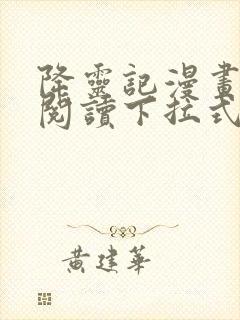 降靈記漫畫
閱讀下拉式
黃建華